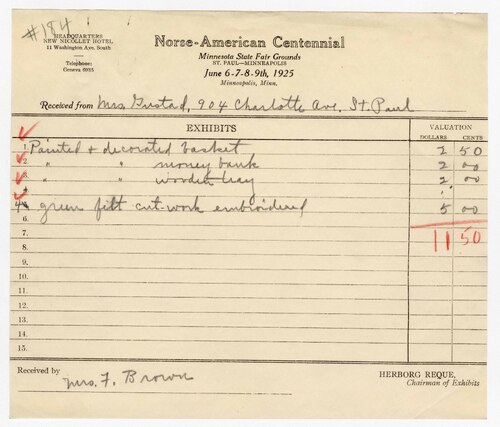 #184
HEADQUARTERS
NEW NICOLLET HOTEL
11 Washington Ave. South
Telephone:
Geneva 6935
Norse-American Centennial
Minnesota State Fair Grounds
ST. PAUL—MINNEAPOLIS
June 6-7-8-9th, 1925
Minneapolis, Minn.
Received from Mrs Gustad, 904 Charlotte Ave. St. Paul
EXHIBITS VALUATION
DOLLARS CENTS
1. Painted + decorated basket 2 50
2 " " money bank 2 00
3 " " wooden tray 2 00
4 green felt cut-work embroidered 5 00
6.
7. 11 50
8.
9.
10.
11.
12.
13.
14.
15.
Received by Mrs. F. Brown
HERBORG REQUE,
Chairman of Exhibits